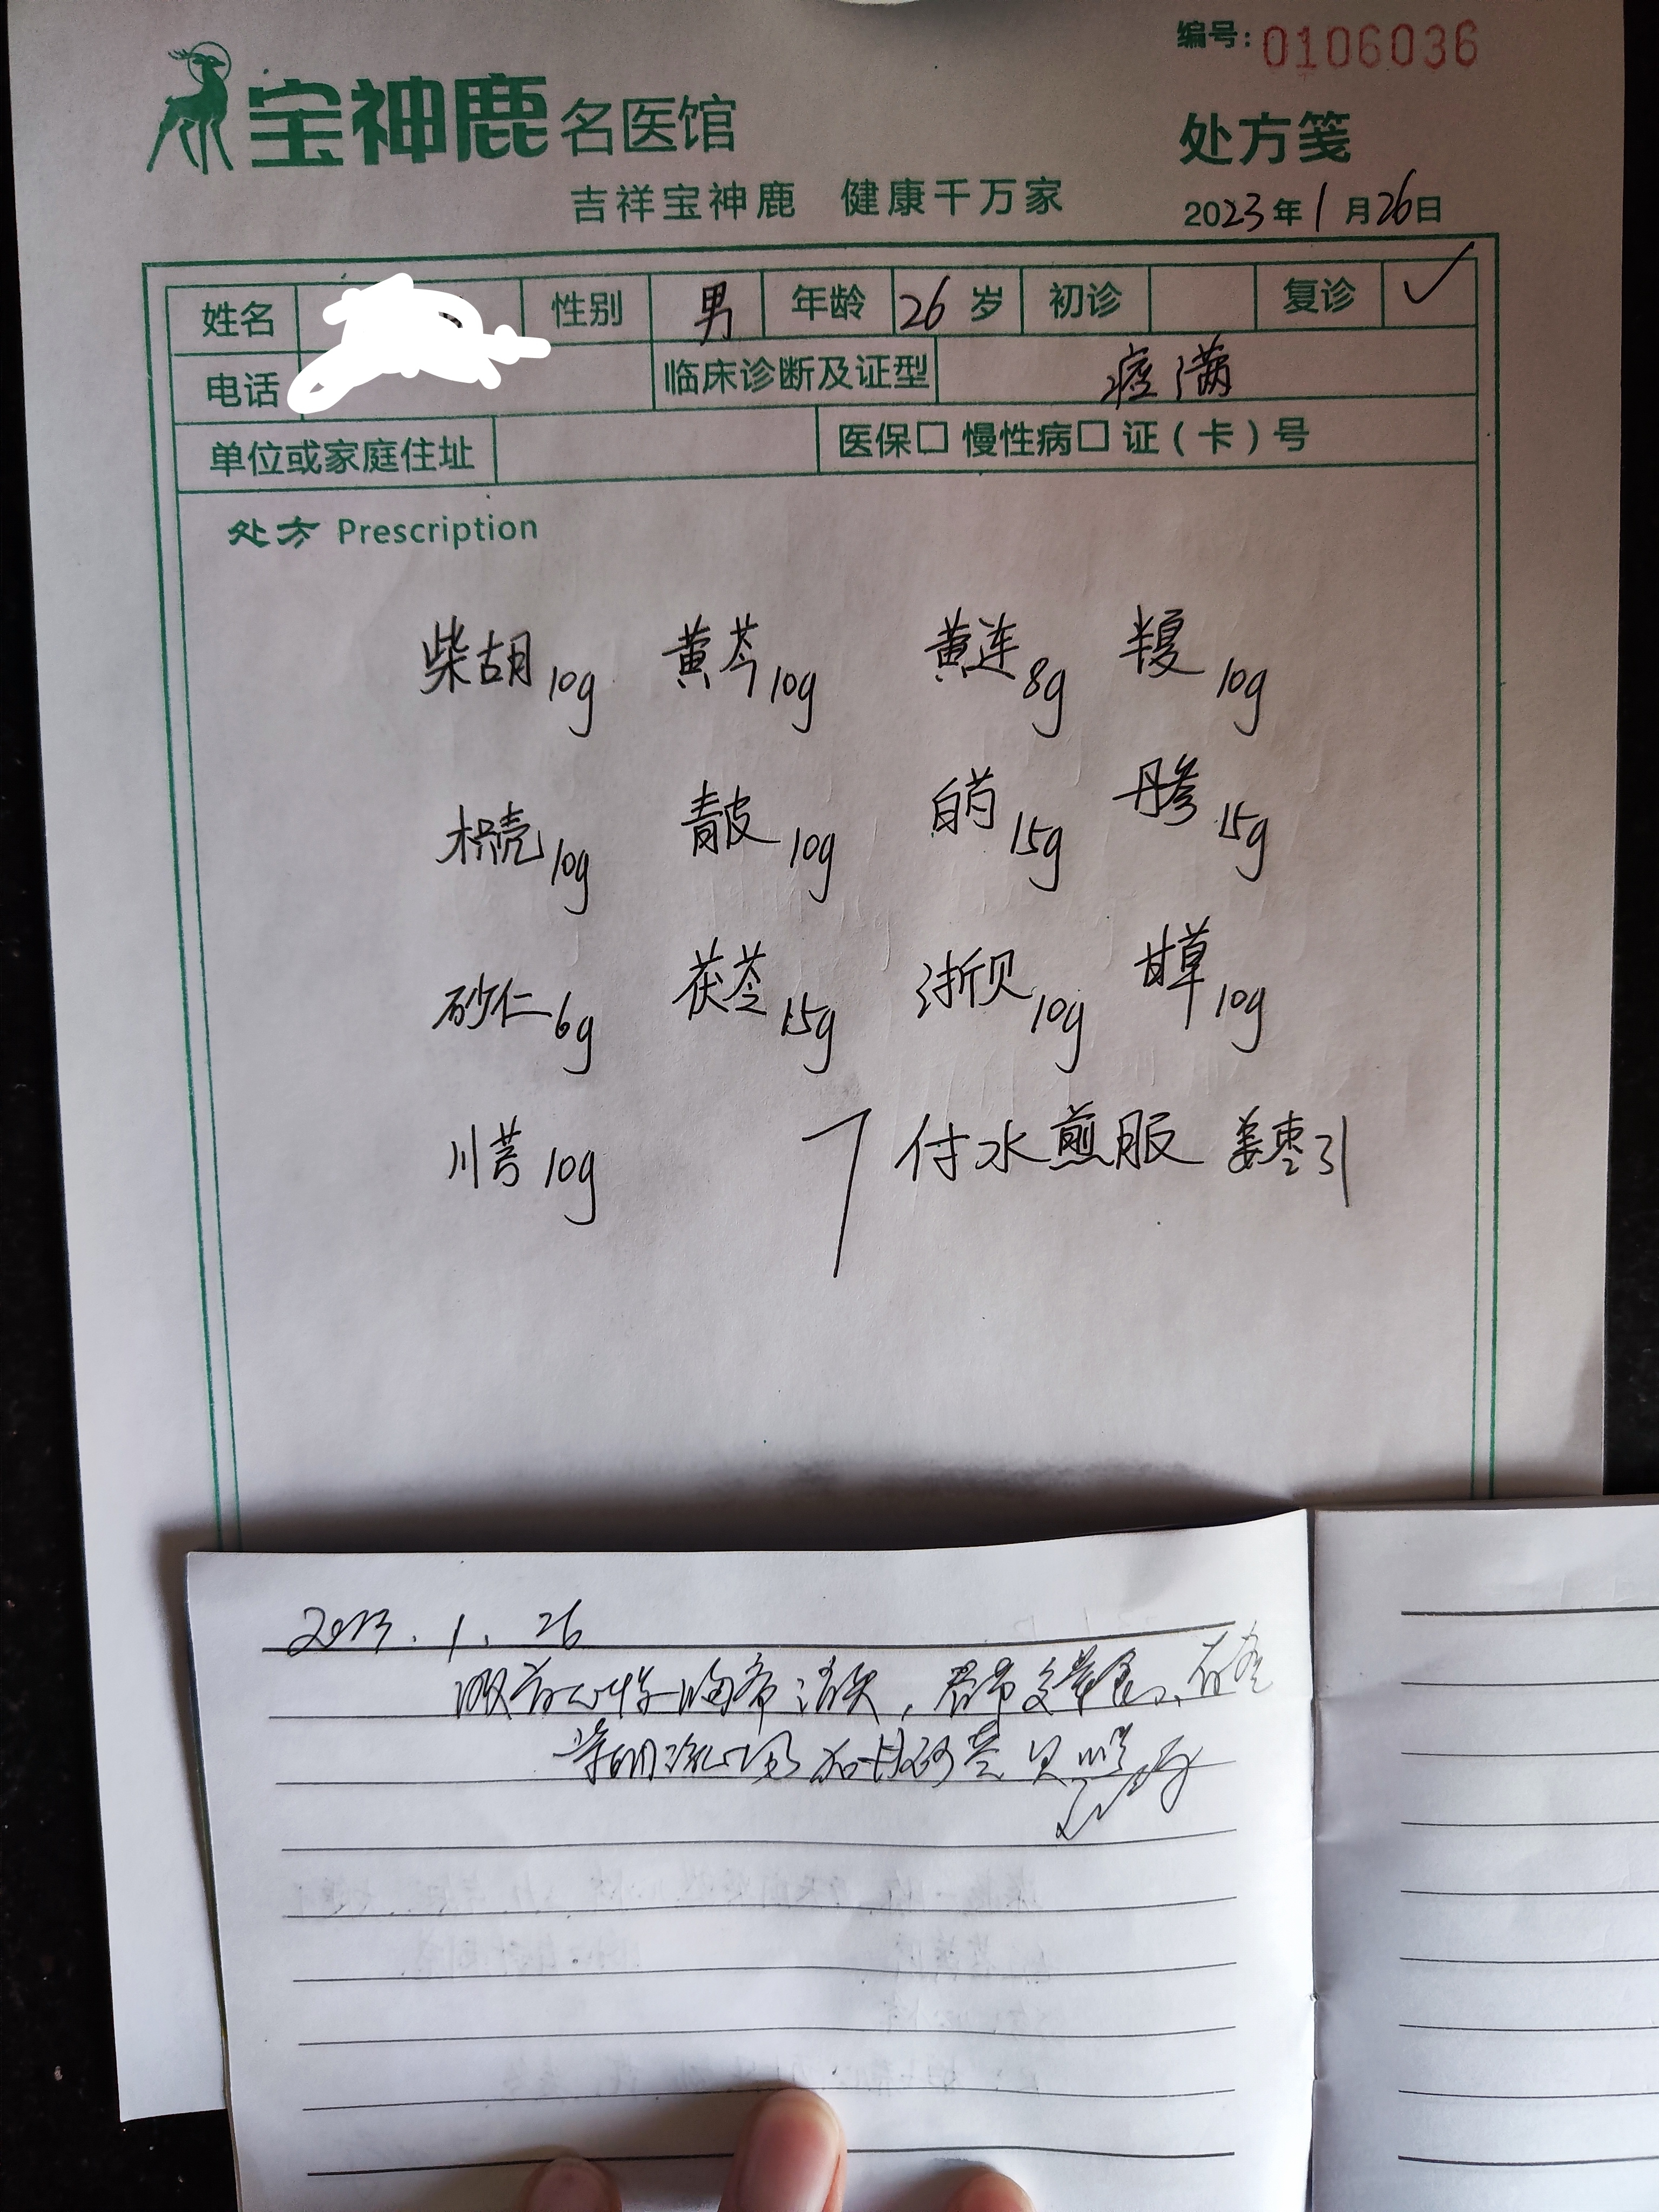 编号：0106036
宝神鹿名医馆
处方笺
吉祥宝神鹿 健康千万家
2023年1月26日
姓名 性别 男 年龄 26岁 初诊 复诊 ✓
电话 临床诊断及证型 痞满
单位或家庭住址 医保□ 慢性病□ 证（卡）号
处方 Prescription
柴胡10g 黄芩10g 黄连8g 半夏10g
枳壳10g 青皮10g 白芍15g 丹参15g
砂仁6g 茯苓15g 浙贝10g 甘草10g
川芎10g 7付水煎服 姜枣引
2023.1.26
消失，